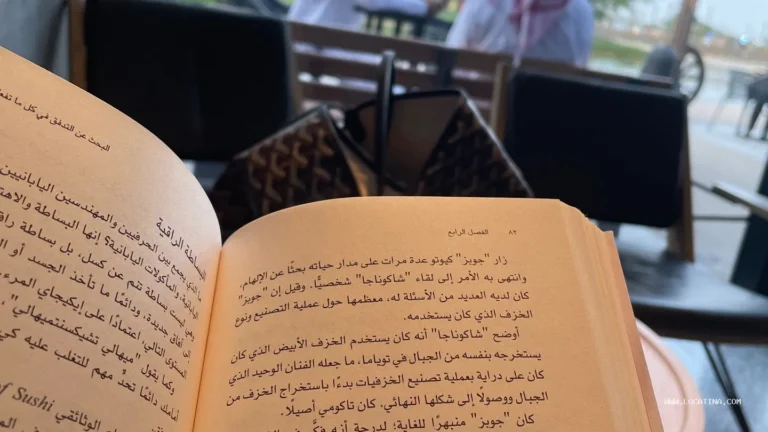 الفصل الرابع ٨٢
زار "جوبز" كيوتو عدة مرات على مدار حياته بحثًا عن الإلهام،
وانتهى به الأمر إلى لقاء "شاكوناجا" شخصيًّا. وقيل إن "جوبز"
كان لديه العديد من الأسئلة له، معظمها حول عملية التصنيع ونوع
الخزف الذي كان يستخدمه.
أوضح "شاكوناجا" أنه كان يستخدم الخزف الأبيض الذي كان
يستخرجه بنفسه من الجبال في توياما، ما جعله الفنان الوحيد الذي
كان على دراية بعملية تصنيع الخزفيات بدءًا باستخراج الخزف من
الجبال ووصولًا إلى شكلها النهائي. كان تاكومي أصيلًا.
كان "جوبز" منبهرًا للغاية؛ لدرجة أنه فكَّر في
البحث عن التدفق في كل ما تفعله
البساطة الراقية
ما الذي يجمع بين الحرفيين والمهندسين اليابانيين
اليابانية، والمأكولات اليابانية؟ إنها البساطة والاهتمام
وهي ليست بساطة تنم عن كسل، بل بساطة راقية
إلى آفاق جديدة، ودائمًا ما تأخذ الجسد أو
المستوى التالي، اعتمادًا على إيكيجاي المرء.
وكما يقول "ميهالي تشيكسنتميهالي"،
أمامك دائمًا تحدٍّ مهم للتغلب عليه كي
الوثائقي of Sushi
WWW.LOCATINA.COM